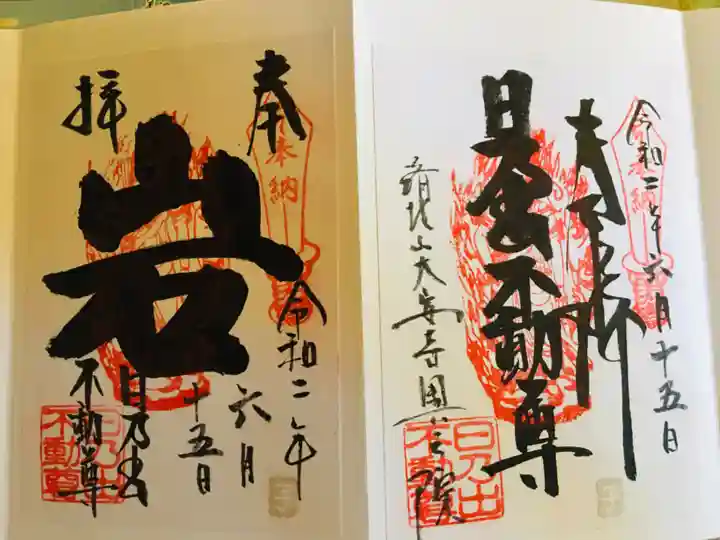 令和二年六月十五日
奉納
不動尊
山大安寺
日乃出
不動尊
奉
拝
奉納
岩
令和二年
六月
十五日
日乃出
不動尊
日乃出
不動尊